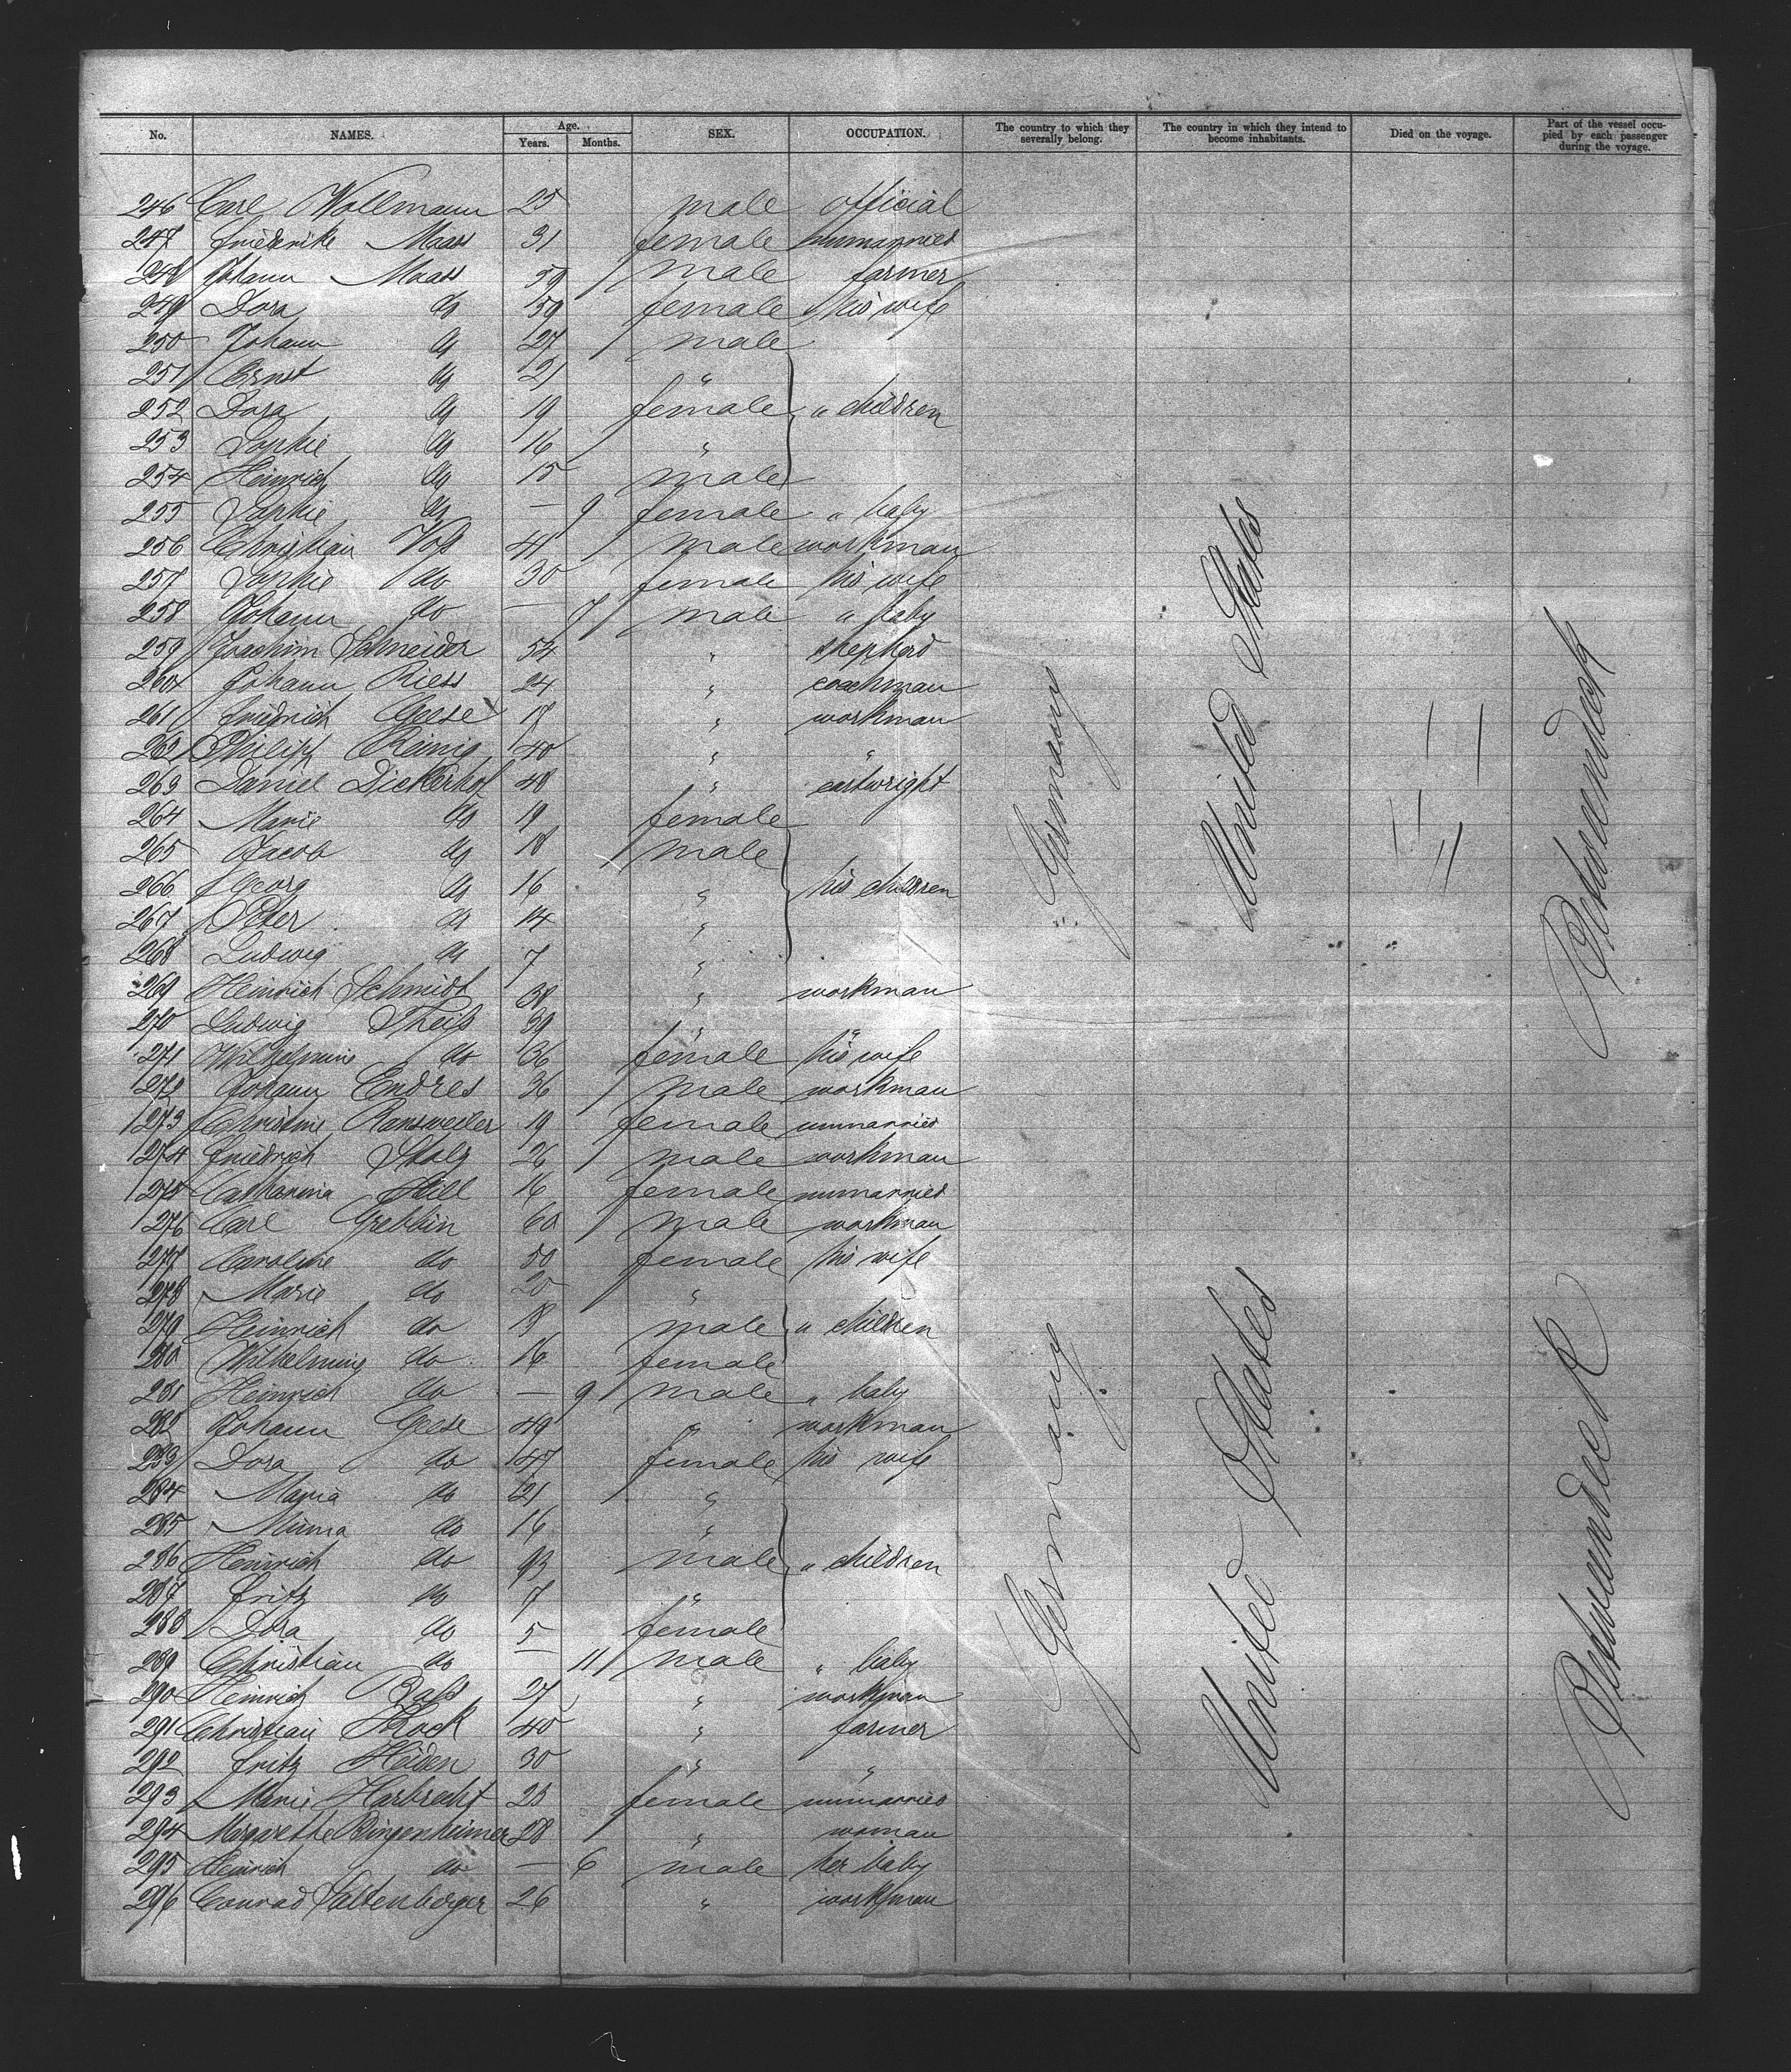 No. NAMES. Age. Years. Months. SEX. OCCUPATION. The country to which they severally belong. The country in which they intend to become inhabitants. Died on the voyage. Part of the vessel occupied by each passenger during the voyage.
246 Carl Wollmann 25 male official
247 Friederike Maass 31 female unmarried
248 Johann Maass 59 male farmer
249 Dora do 59 female his wife
250 Johann do 27 male
251 Ernst do 21 "
252 Dora do 19 female " children
253 Sophie do 16 "
254 Heinrich do 15 male
255 Sophie do — 9 female " baby
256 Christian Voß 41 male workman
257 Sophie do 30 female his wife
258 Johann do — 7 male " baby
259 Joachim Schneider 54 " shepherd
260 Johann Riess 24 " coachman
261 Friedrich Geese 18 " workman
262 Philipp Reinig 40 " "
263 Daniel Dickerhof 48 " cartwright
264 Marie do 19 female
265 Jacob do 18 male
266 Georg do 16 " his children
267 Peter do 14 "
268 Ludwig do 7 "
269 Heinrich Schmidt 38 " workman
270 Ludwig Theiß 39 " "
271 Wilhelmine do 36 female his wife
272 Johann Endres 36 male workman
273 Christine Ransweiler 19 female unmarried
274 Friedrich Stolz 26 male workman
275 Catharina Hill 16 female unmarried
276 Carl Grebbin 60 male workman
277 Caroline do 50 female his wife
278 Marie do 20 "
279 Heinrich do 18 male " children
280 Wilhelmine do 16 female
281 Heinrich do — 9 male " baby
282 Johann Geese 49 " workman
283 Dora do 47 female his wife
284 Maria do 21 "
285 Minna do 16 "
286 Heinrich do 93 male " children
287 Fritz do 7 "
288 Dora do 5 female
289 Christian do — 11 male " baby
290 Heinrich Bass 27 " workman
291 Christian Thock 40 " farmer
292 Fritz Heiden 30 " "
293 Marie Harbrecht 23 female unmarried
294 Margarethe Bingenheimer 28 " woman
295 Heinrich do — 6 male her baby
296 Conrad Saltenberger 26 " workman
Germany
United States
Betweendeck
Germany
United States
Betweendeck